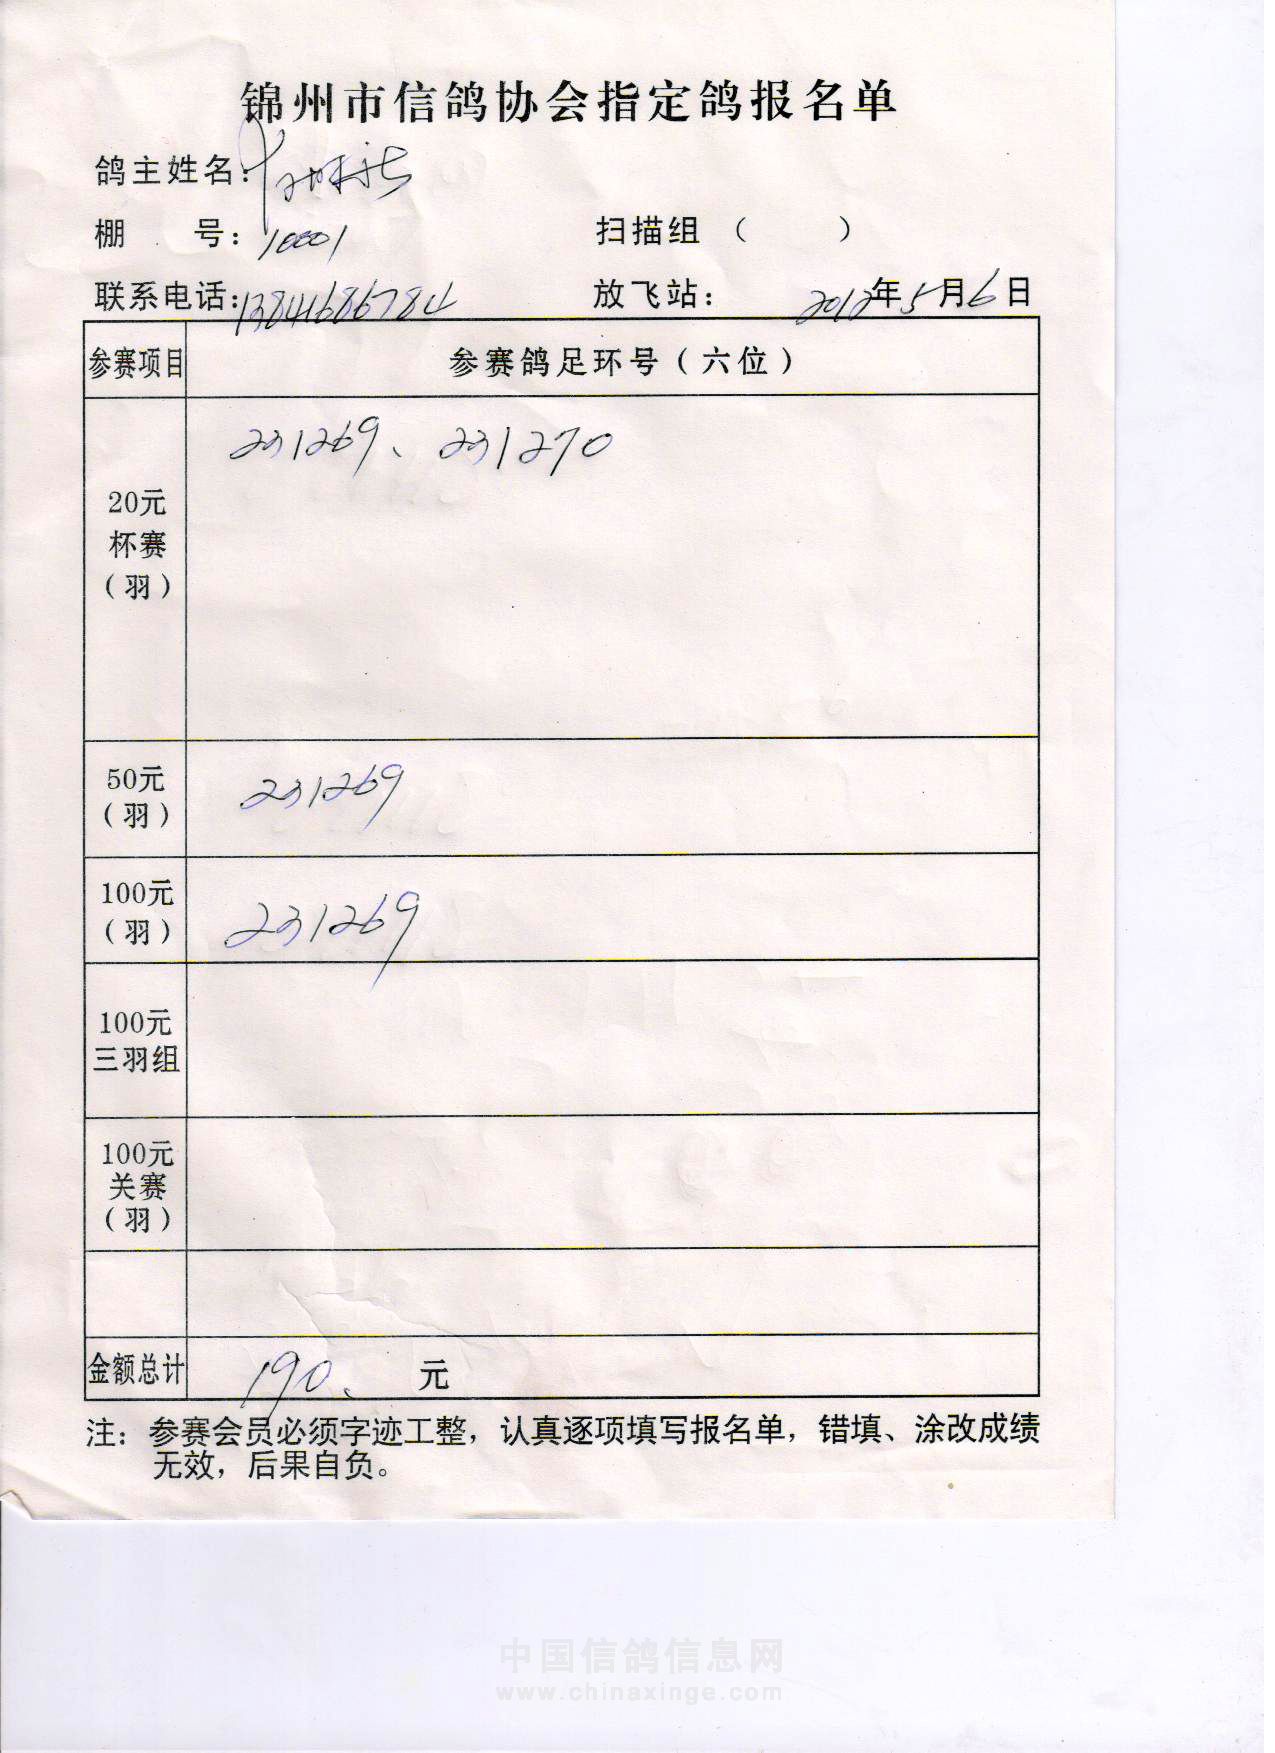 锦州市信鸽协会指定鸽报名单
鸽主姓名:
棚 号: 10001 扫描组 ( )
联系电话: 13841686784 放飞站: 2012年5月6日
参赛项目 参赛鸽足环号(六位)
20元
杯赛
(羽)
231269、231270
50元
(羽)
231269
100元
(羽)
231269
100元
三羽组
100元
关赛
(羽)
金额总计 190、 元
注: 参赛会员必须字迹工整，认真逐项填写报名单，错填、涂改成绩
无效，后果自负。
中国信鸽信息网
www.chinaxinge.com